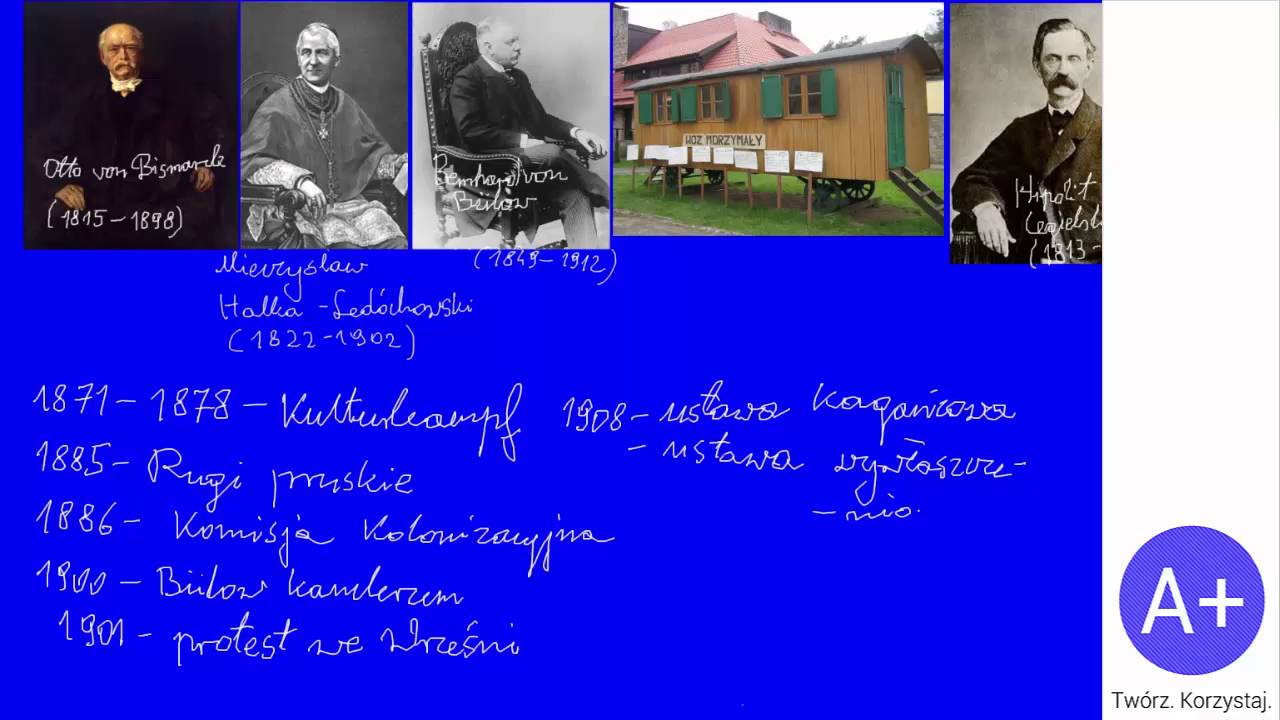 Otto von Bismarck
(1815-1898)
Mieczysław
Halka-Ledóchowski
(1822-1902)
Bernhard von
Bülow
(1849-1912)
WÓZ DRZYMAŁY
Hipolit
Cegielsk
(1813-
1871-1878-Kulturkampf
1885-Rugi pruskie
1886-Komisja Kolonizacyjna
1900-Bülow kanclerzem
1901-protest we Wrześni
1908-ustawa kagańcowa
-ustawa wywłaszcze-
-nio.
A+
Twórz. Korzystaj.